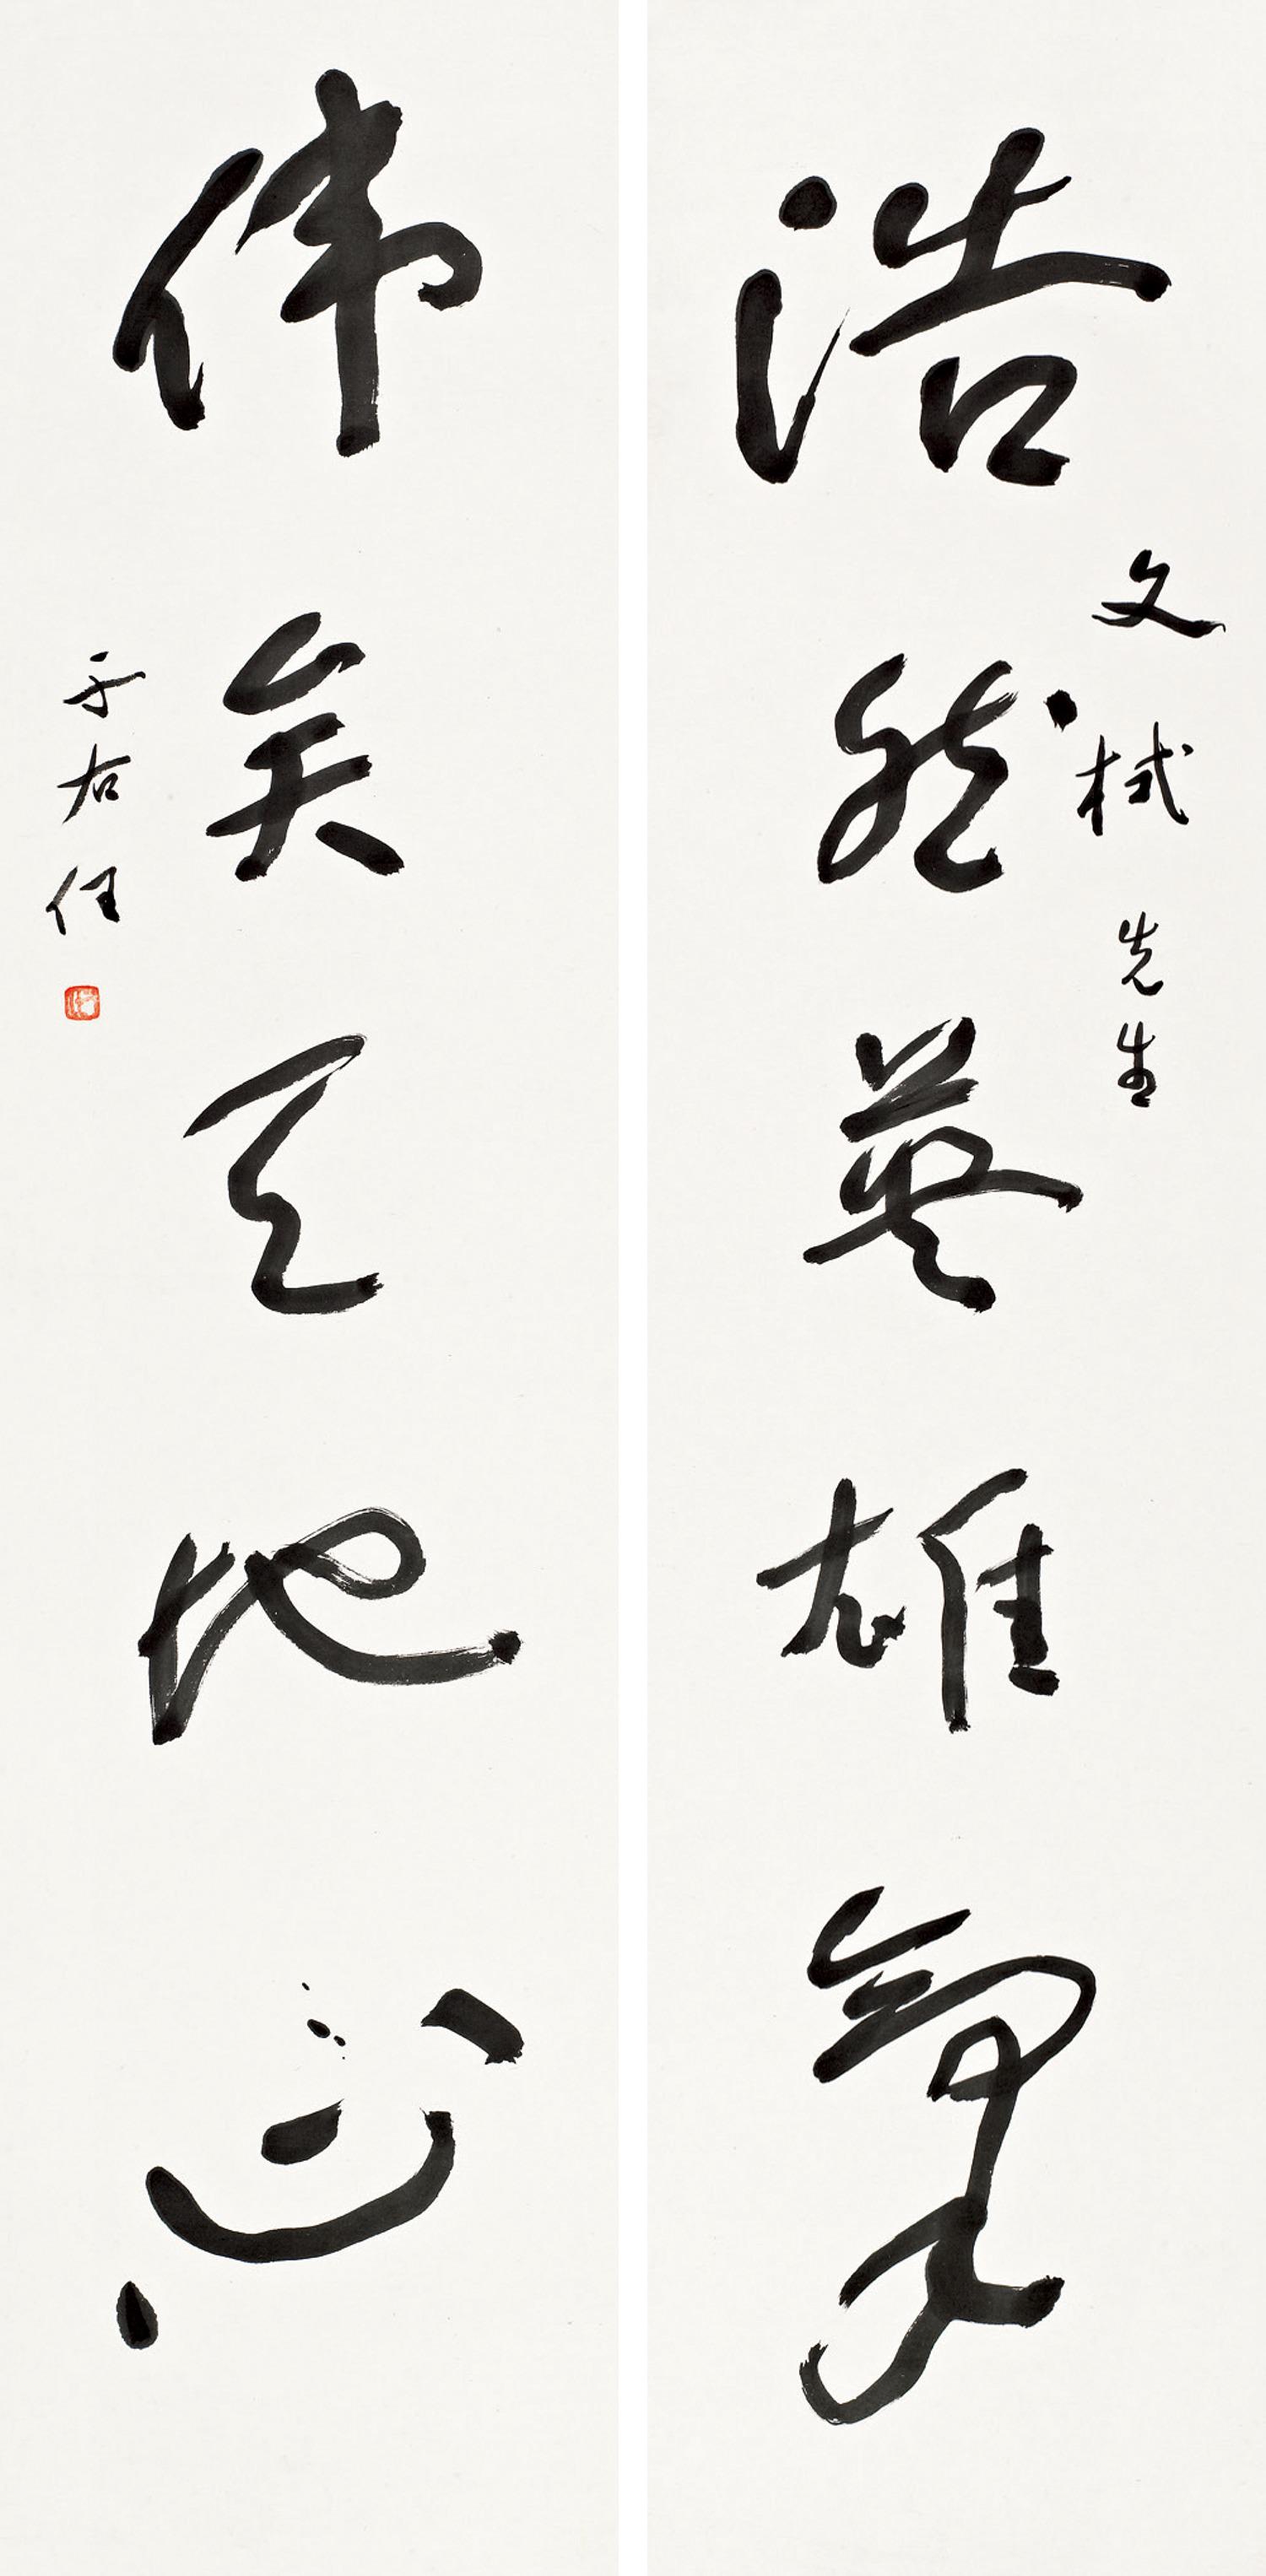 浩然英雄氣
文栻先生
偉矣天地心
于右任